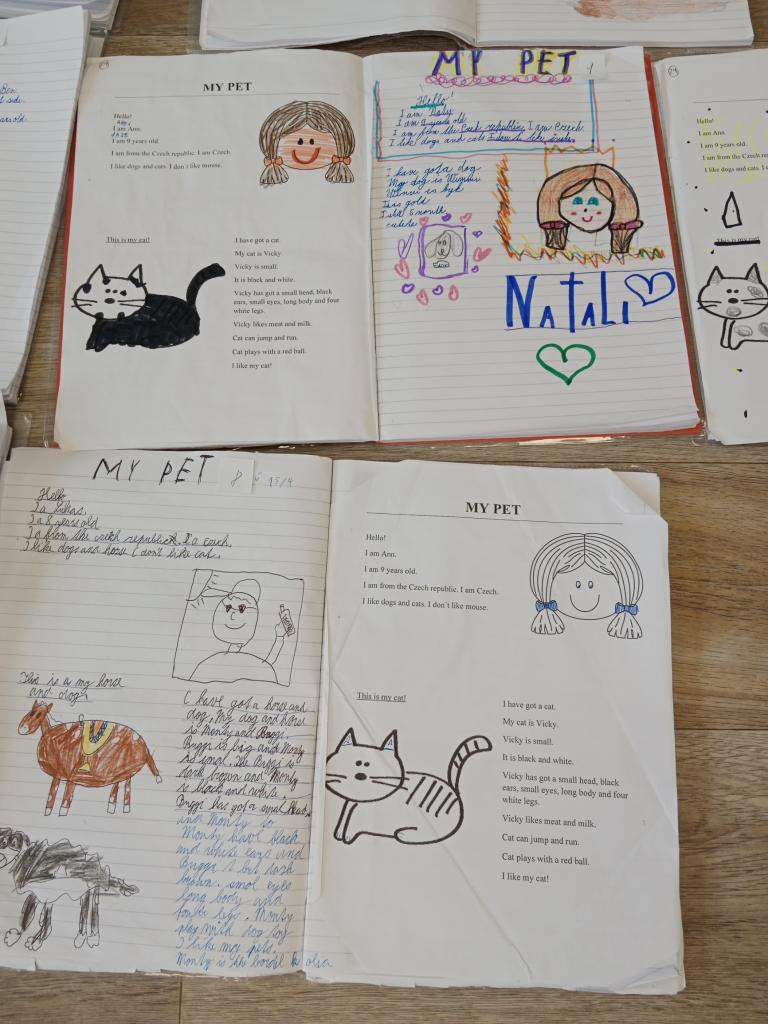 Ben
MY PET
Hello!
I am Ann.
I am 9 years old.
I am from the Czech republic. I am Czech.
I like dogs and cats. I don´t like mouse.
This is my cat!
I have got a cat.
My cat is Vicky.
Vicky is small.
It is black and white.
Vicky has got a small head, black
ears, small eyes, long body and four
white legs.
Vicky likes meat and milk.
Cat can jump and run.
Cat plays with a red ball.
I like my cat!
MY PET
Hello!
I am
I am 9 years old
I am from the Czech republic. I am Czech
I like dogs and cats
I have got a dog
My dog is
is
is gold
month
NATALI
Hello!
I am Ann.
I am 9 years old.
I am from the Czech
I like dogs and cats. I
This is my cat!
MY PET
8 15/4
Hello
I a Lukas.
I a 8 years old
I a from the republic. I a czech
I like dogs and horse I don't like cat.
This is a my horse
and dog.
I have got a horse and
dog. My dog and horse
is Monty and Briggi.
Briggi is big and Monty
is smol. The Briggi is
dark brown and Monty
is black and white.
Briggi has got a smal Head,
and Monty to
Monty have black
and white ears and
Briggi dark
brown. smol eyes
long body and
legs. Monty
play with dog toy
I like my pets.
Monty is the
MY PET
Hello!
I am Ann.
I am 9 years old.
I am from the Czech republic. I am Czech.
I like dogs and cats. I don´t like mouse.
This is my cat!
I have got a cat.
My cat is Vicky.
Vicky is small.
It is black and white.
Vicky has got a small head, black
ears, small eyes, long body and four
white legs.
Vicky likes meat and milk.
Cat can jump and run.
Cat plays with a red ball.
I like my cat!